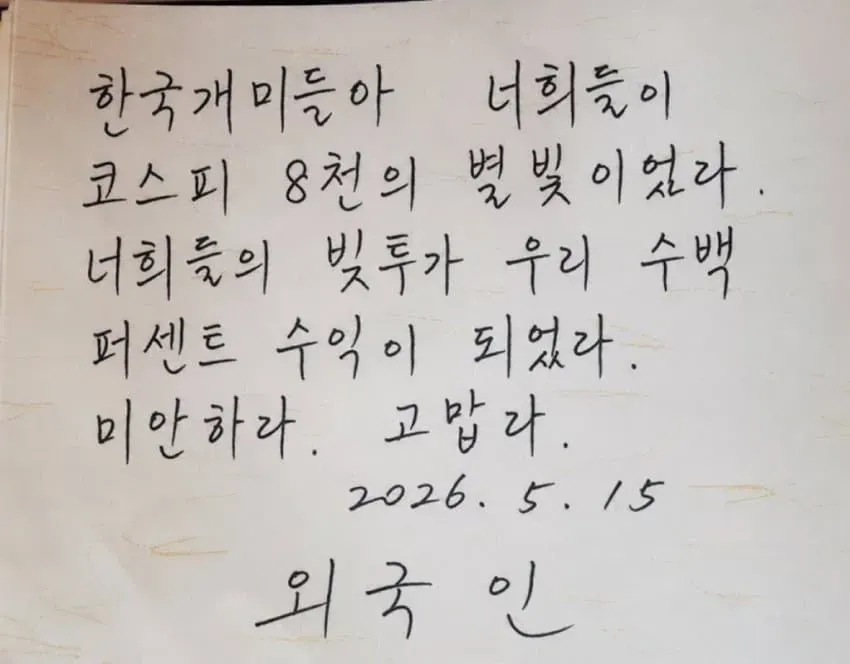 한국개미들아 너희들이
코스피 8천의 별빛이었라.
너희들의 빚투가 우리 수백
퍼센트 수익이 되었라.
미안하라. 고맙라.
2026. 5. 15
외국인